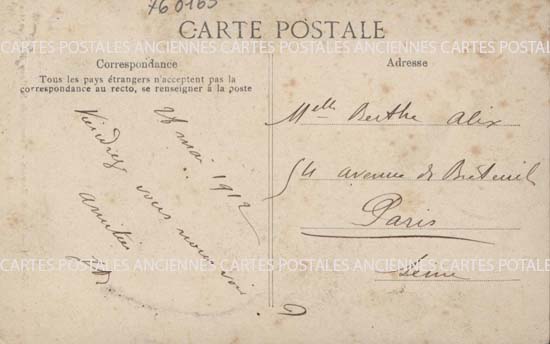 760165
CARTE POSTALE
CARTES POSTALES ANCIENNES CARTES POSTALES ANCIENNES CARTES POTALE
Correspondance
Tous les pays étrangers n'acceptent pas la
correspondance au recto, se renseigner à la poste
28 mai 1912
Viendrez vous nous voir ?
amitiés
Adresse
Melle Berthe Alix
54 avenue de Breteuil
Paris
Seine
CARTES POSTALES ANCIENNES CARTES POSTALES ANCIENNES CARTES POTALE